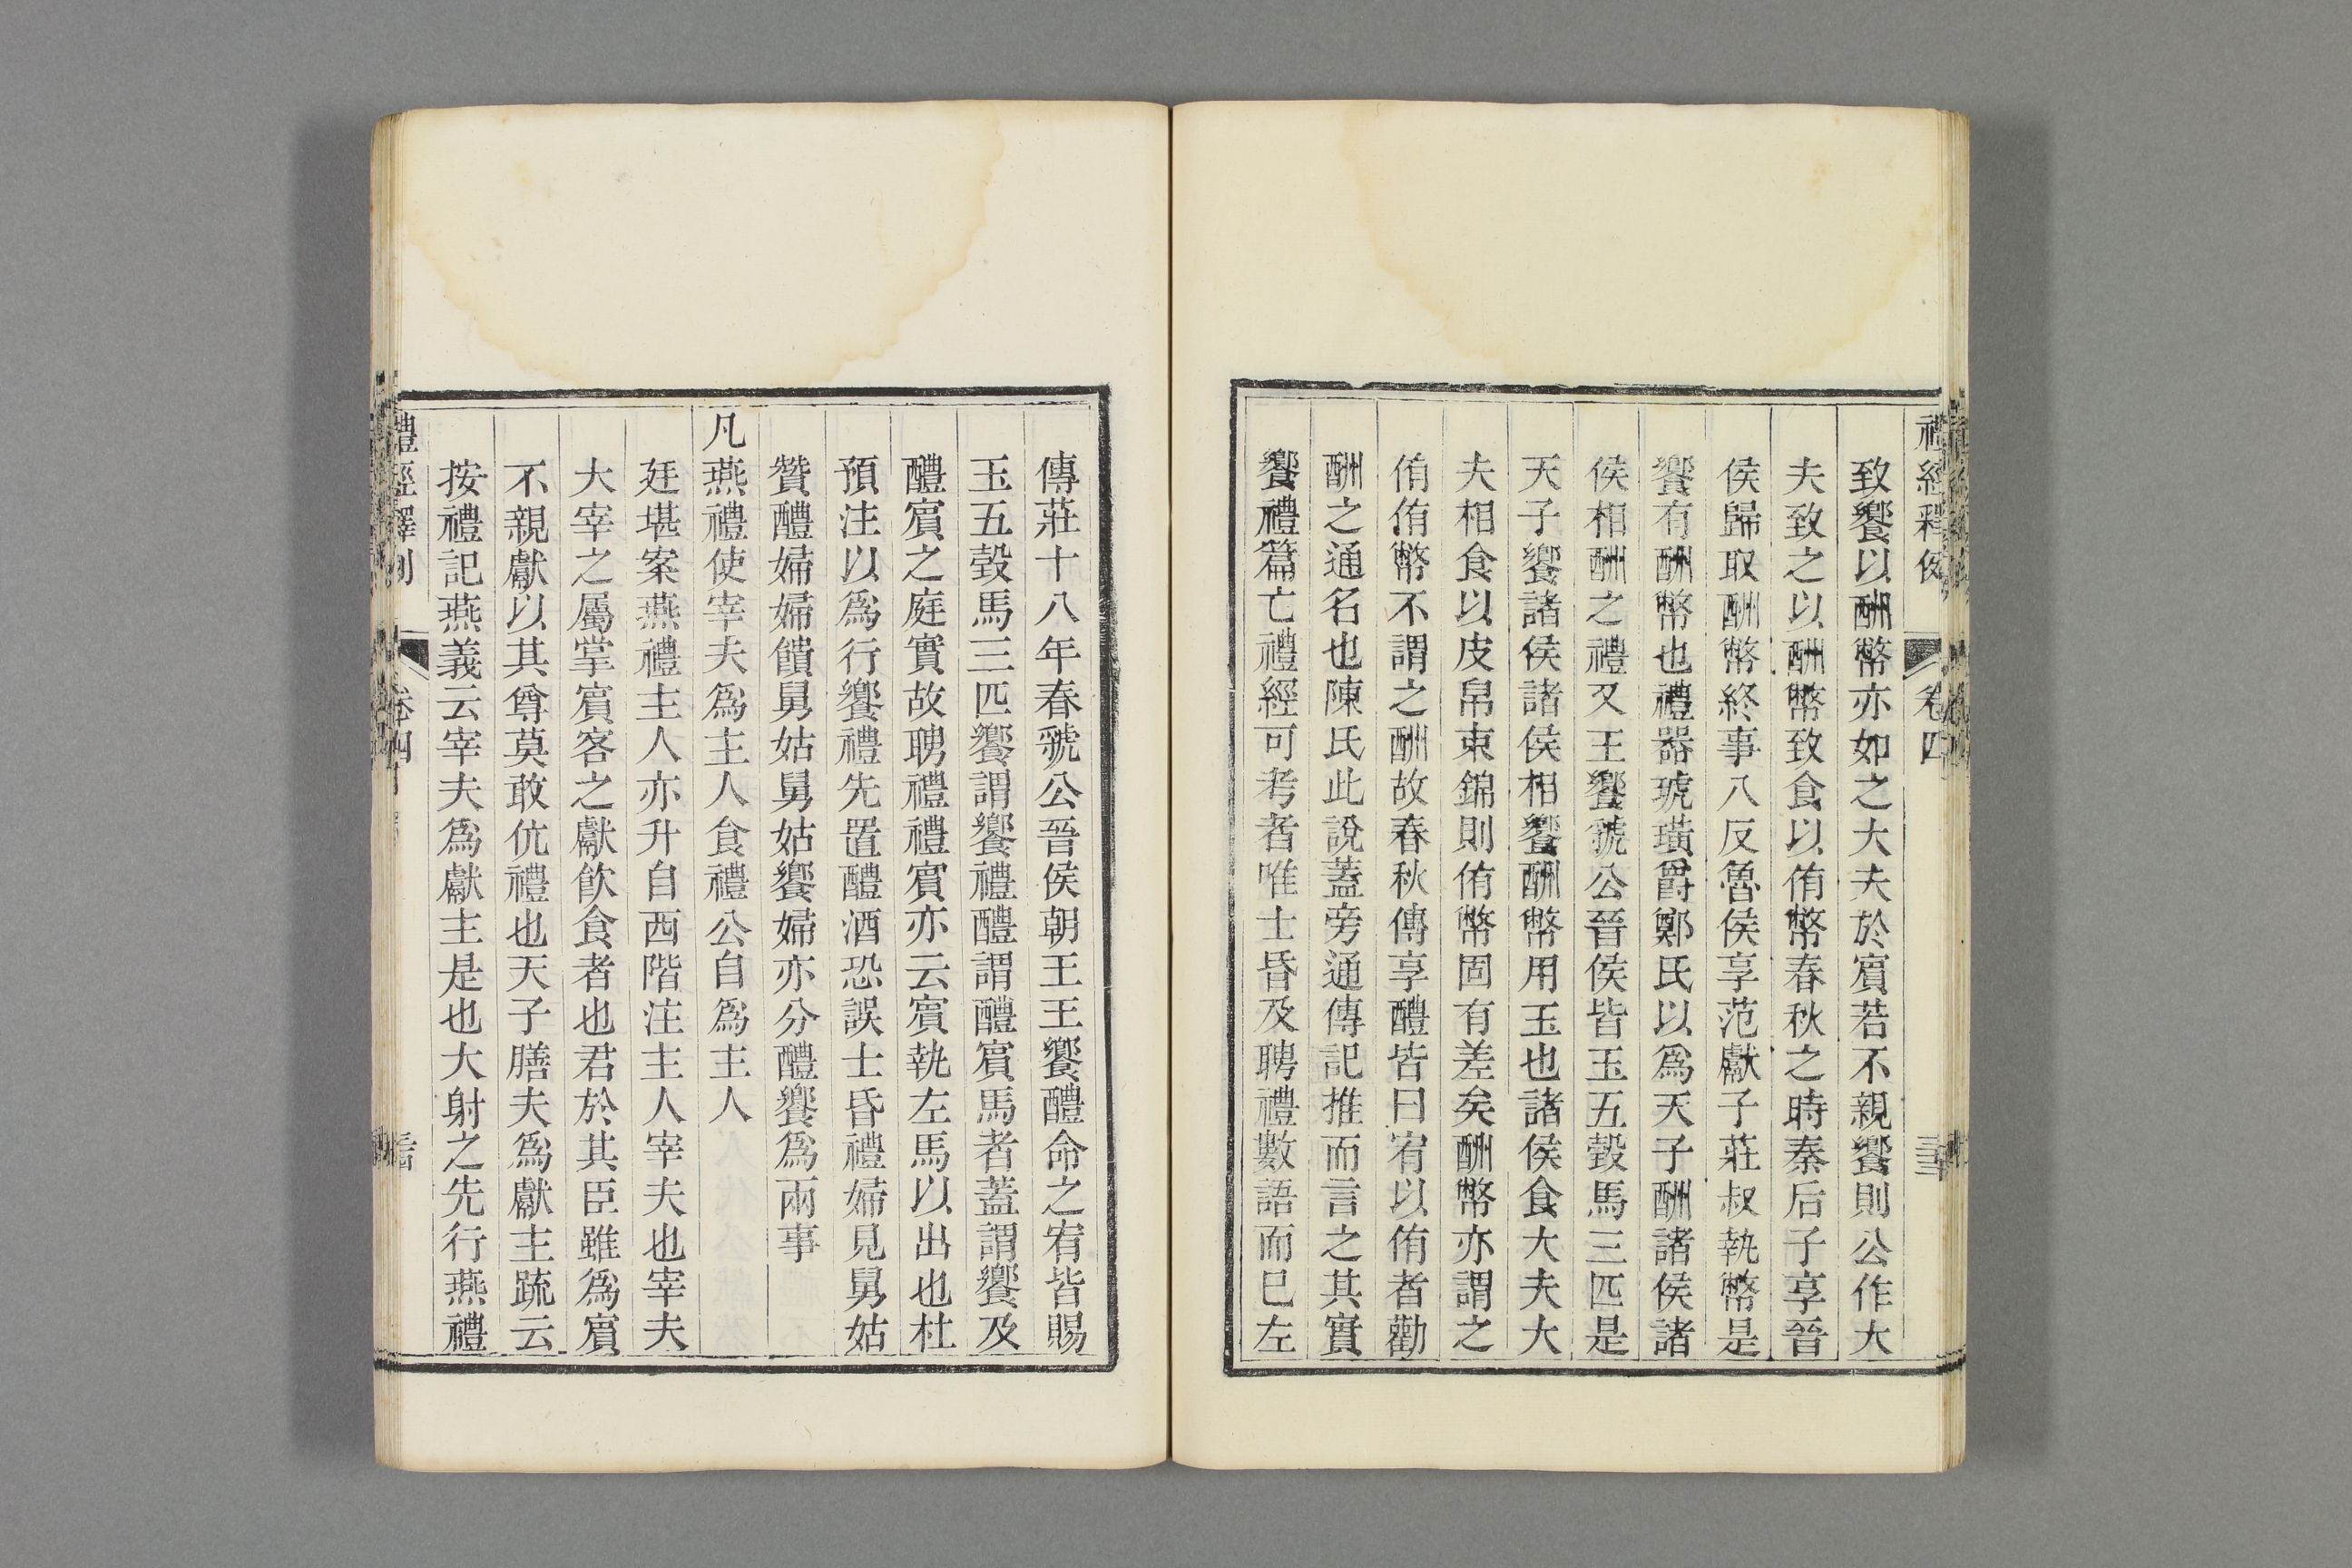 禮經釋例
卷四
致饗以酬幣亦如之大夫於賓若不親饗則公作大
夫致之以酬幣致食以侑幣春秋之時秦后子享晉
侯歸取酬幣終事八反魯侯享范獻子莊叔執幣是
饗有酬幣也禮器琥璜爵鄭氏以爲天子酬諸侯諸
侯相酬之禮又王饗虢公晉侯皆玉五瑴馬三匹是
天子饗諸侯諸侯相饗酬幣用玉也諸侯食大夫大
夫相食以皮帛束錦則侑幣固有差矣酬幣亦謂之
侑侑幣不謂之酬故春秋傳享醴皆曰宥以侑者勸
酬之通名也陳氏此說蓋旁通傳記推而言之其實
饗禮篇亡禮經可考者唯士昏及聘禮數語而已左
傳莊十八年春虢公晉侯朝王王饗醴命之宥皆賜
玉五瑴馬三匹饗謂饗禮醴謂醴賓馬者蓋謂饗及
醴賓之庭實故聘禮禮賓亦云賓執左馬以出也杜
預注以爲行饗禮先置醴酒恐誤士昏禮婦見舅姑
贊醴婦婦饋舅姑舅姑饗婦亦分醴饗爲兩事
凡燕禮使宰夫爲主人食禮公自爲主人
廷堪案燕禮主人亦升自西階注主人宰夫也宰夫
大宰之屬掌賓客之獻飲食者也君於其臣雖爲賓
不親獻以其尊莫敢伉禮也天子膳夫爲獻主疏云
按禮記燕義云宰夫爲獻主是也大射之先行燕禮
禮經釋例
卷四